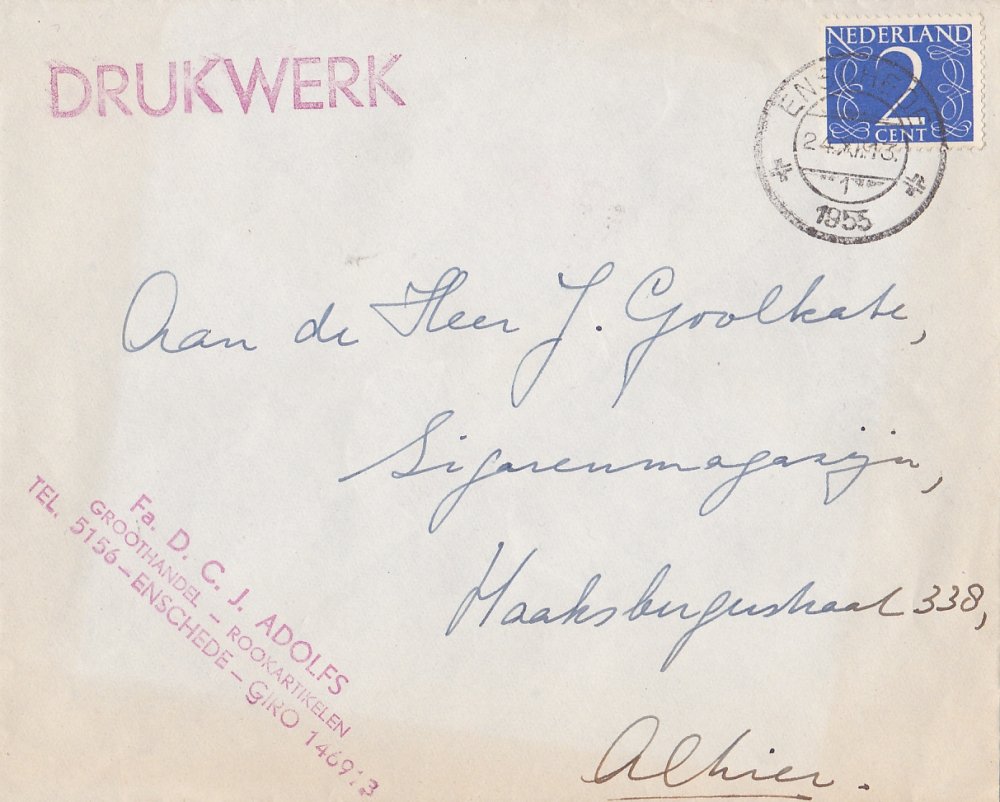 DRUKWERK
NEDERLAND
2
CENT
ENSCHEDE
24.XI.13.
1
1955
Aan de Heer J. Goolkate,
Sigarenmagazijn,
Haaksbergerstraat 338,
Alhier.
Fa. D. C. J. ADOLFS
GROOTHANDEL – ROOKARTIKELEN
TEL. 5156 – ENSCHEDE – GIRO 146913